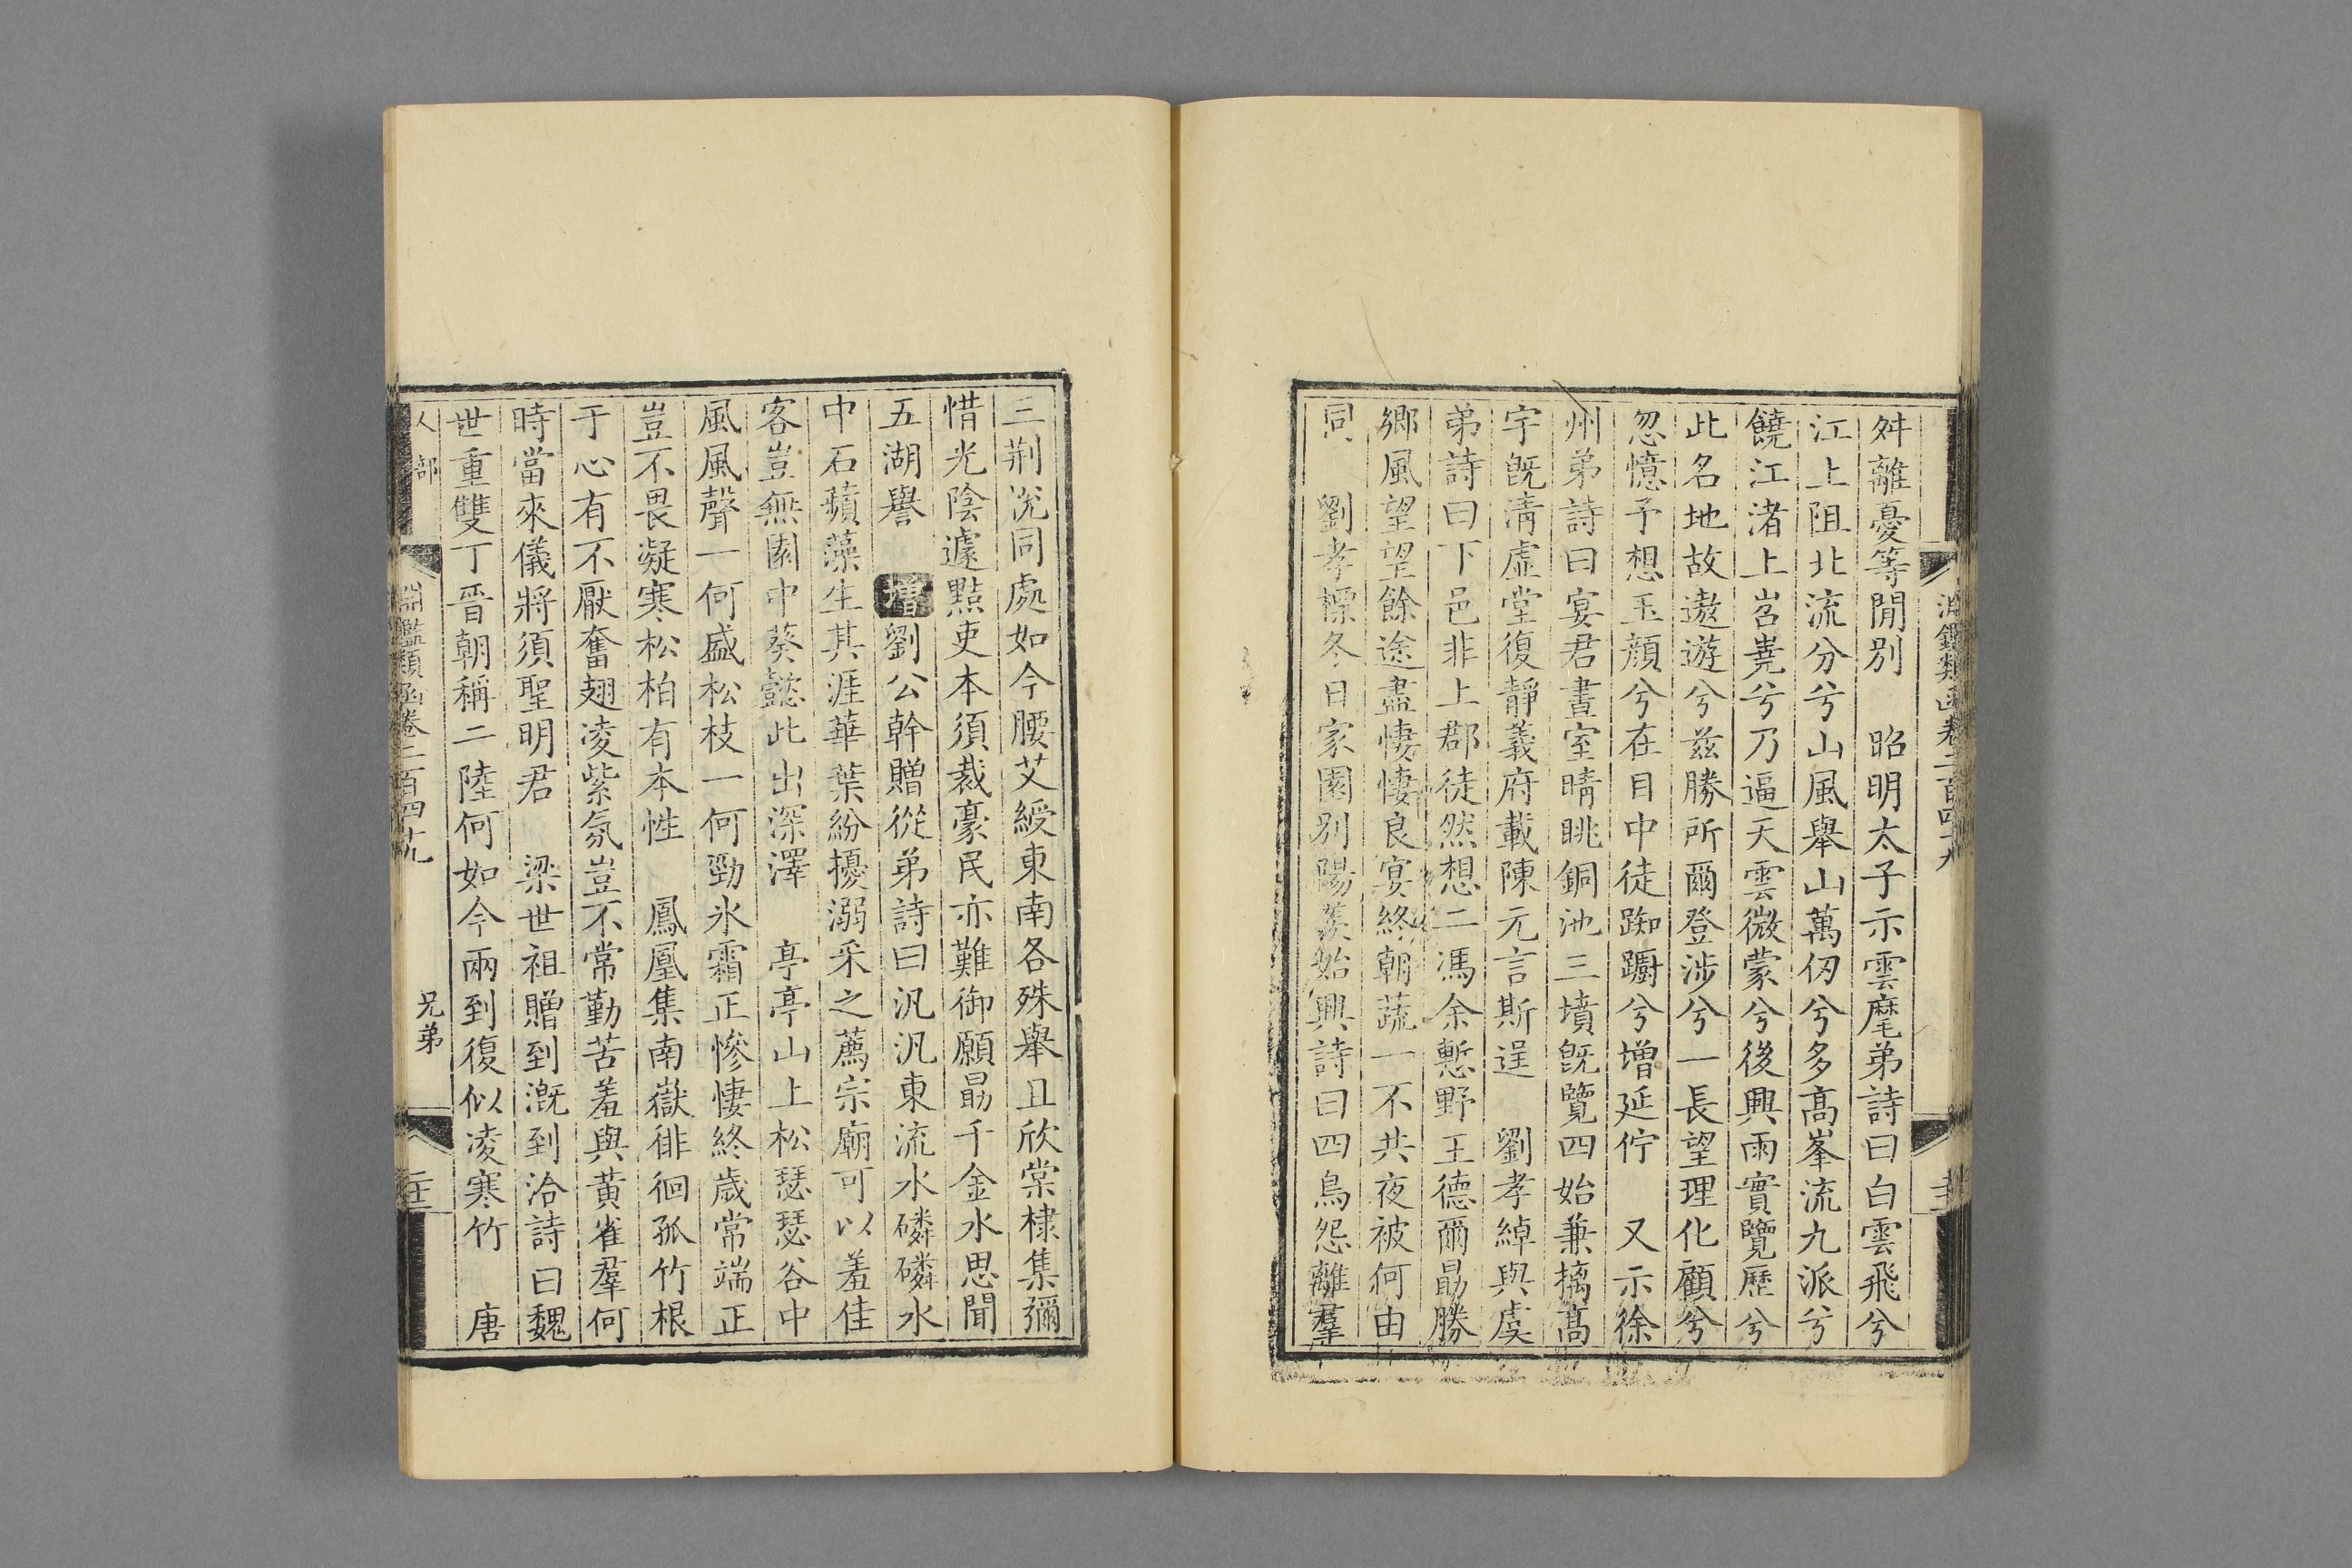 淵鑑類函卷二百四十九
舛離憂等閒別　昭明太子示雲麾弟詩曰白雲飛兮
江上阻北流分兮山風舉山萬仭兮多高峯流九派兮
饒江渚上岧嶤兮乃逼天雲微蒙兮後興雨實覽歷兮
此名地故遨遊兮兹勝所爾登涉兮一長望理化顧兮
忽憶予想玉顔兮在目中徒踟躕兮增延佇　又示徐
州弟詩曰宴君晝室晴眺銅池三墳旣覽四始兼摛高
宇旣清虛堂復靜義府載陳元言斯逞　劉孝綽與虞
弟詩曰下邑非上郡徒然想二馮余慙野王德爾勗勝
鄉風望望餘途盡悽悽良宴終朝蔬一不共夜被何由
同　劉孝標冬日家園別陽羨始興詩曰四鳥怨離羣
三荆恱同處如今腰艾綬東南各殊舉且欣棠棣集彌
惜光陰遽黠吏本須裁豪民亦難御願勗千金水思聞
五湖譽　增劉公幹贈從弟詩曰汎汎東流水磷磷水
中石蘋藻生其涯華葉紛擾溺采之薦宗廟可以羞佳
客豈無園中葵懿此出深澤　亭亭山上松瑟瑟谷中
風風聲一何盛松枝一何勁氷霜正慘悽終歲常端正
豈不畏凝寒松柏有本性　鳳凰集南嶽徘徊孤竹根
于心有不厭奮翅凌紫氛豈不常勤苦羞與黃雀羣何
時當來儀將須聖明君　梁世祖贈到漑到洽詩曰魏
世重雙丁晉朝稱二陸何如今兩到復似凌寒竹　唐
人部　淵鑑類函卷二百四十九　兄弟